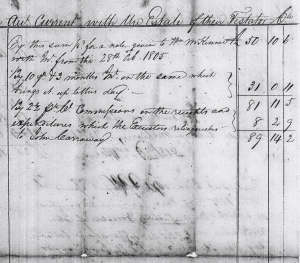 Acct Current with the Estate of their Testator Cr
By this sum pd for a note given to Wm McKennoth 50 10 6
with Int from the 28th Feb 1805
By 10 ys & 3 months Int on the same which
brings it up to this day 31 0 11
81 11 5
By 2½ Pr Ct Commissions on the receipts and
expenditures which the Executor relinquishes 8 2 9
to John Carraway 89 14 2